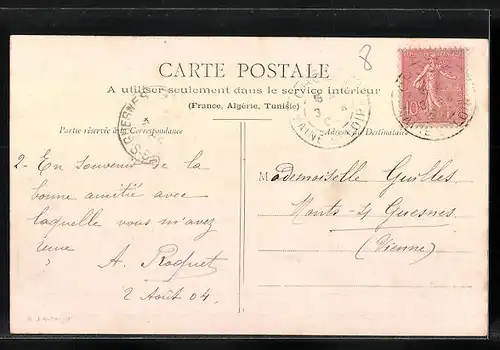 8
CARTE POSTALE
A utiliser seulement dans le service intérieur
(France, Algérie, Tunisie)
Partie réservée à la Correspondance
Adresse du Destinataire
10
MAINE LOIRE
2- En souvenir de la
bonne amitié avec
laquelle vous m'avez
A. Roquet
2 Août 04.
Mademoiselle Guilles
Monts s/ Guesnes
(Vienne)